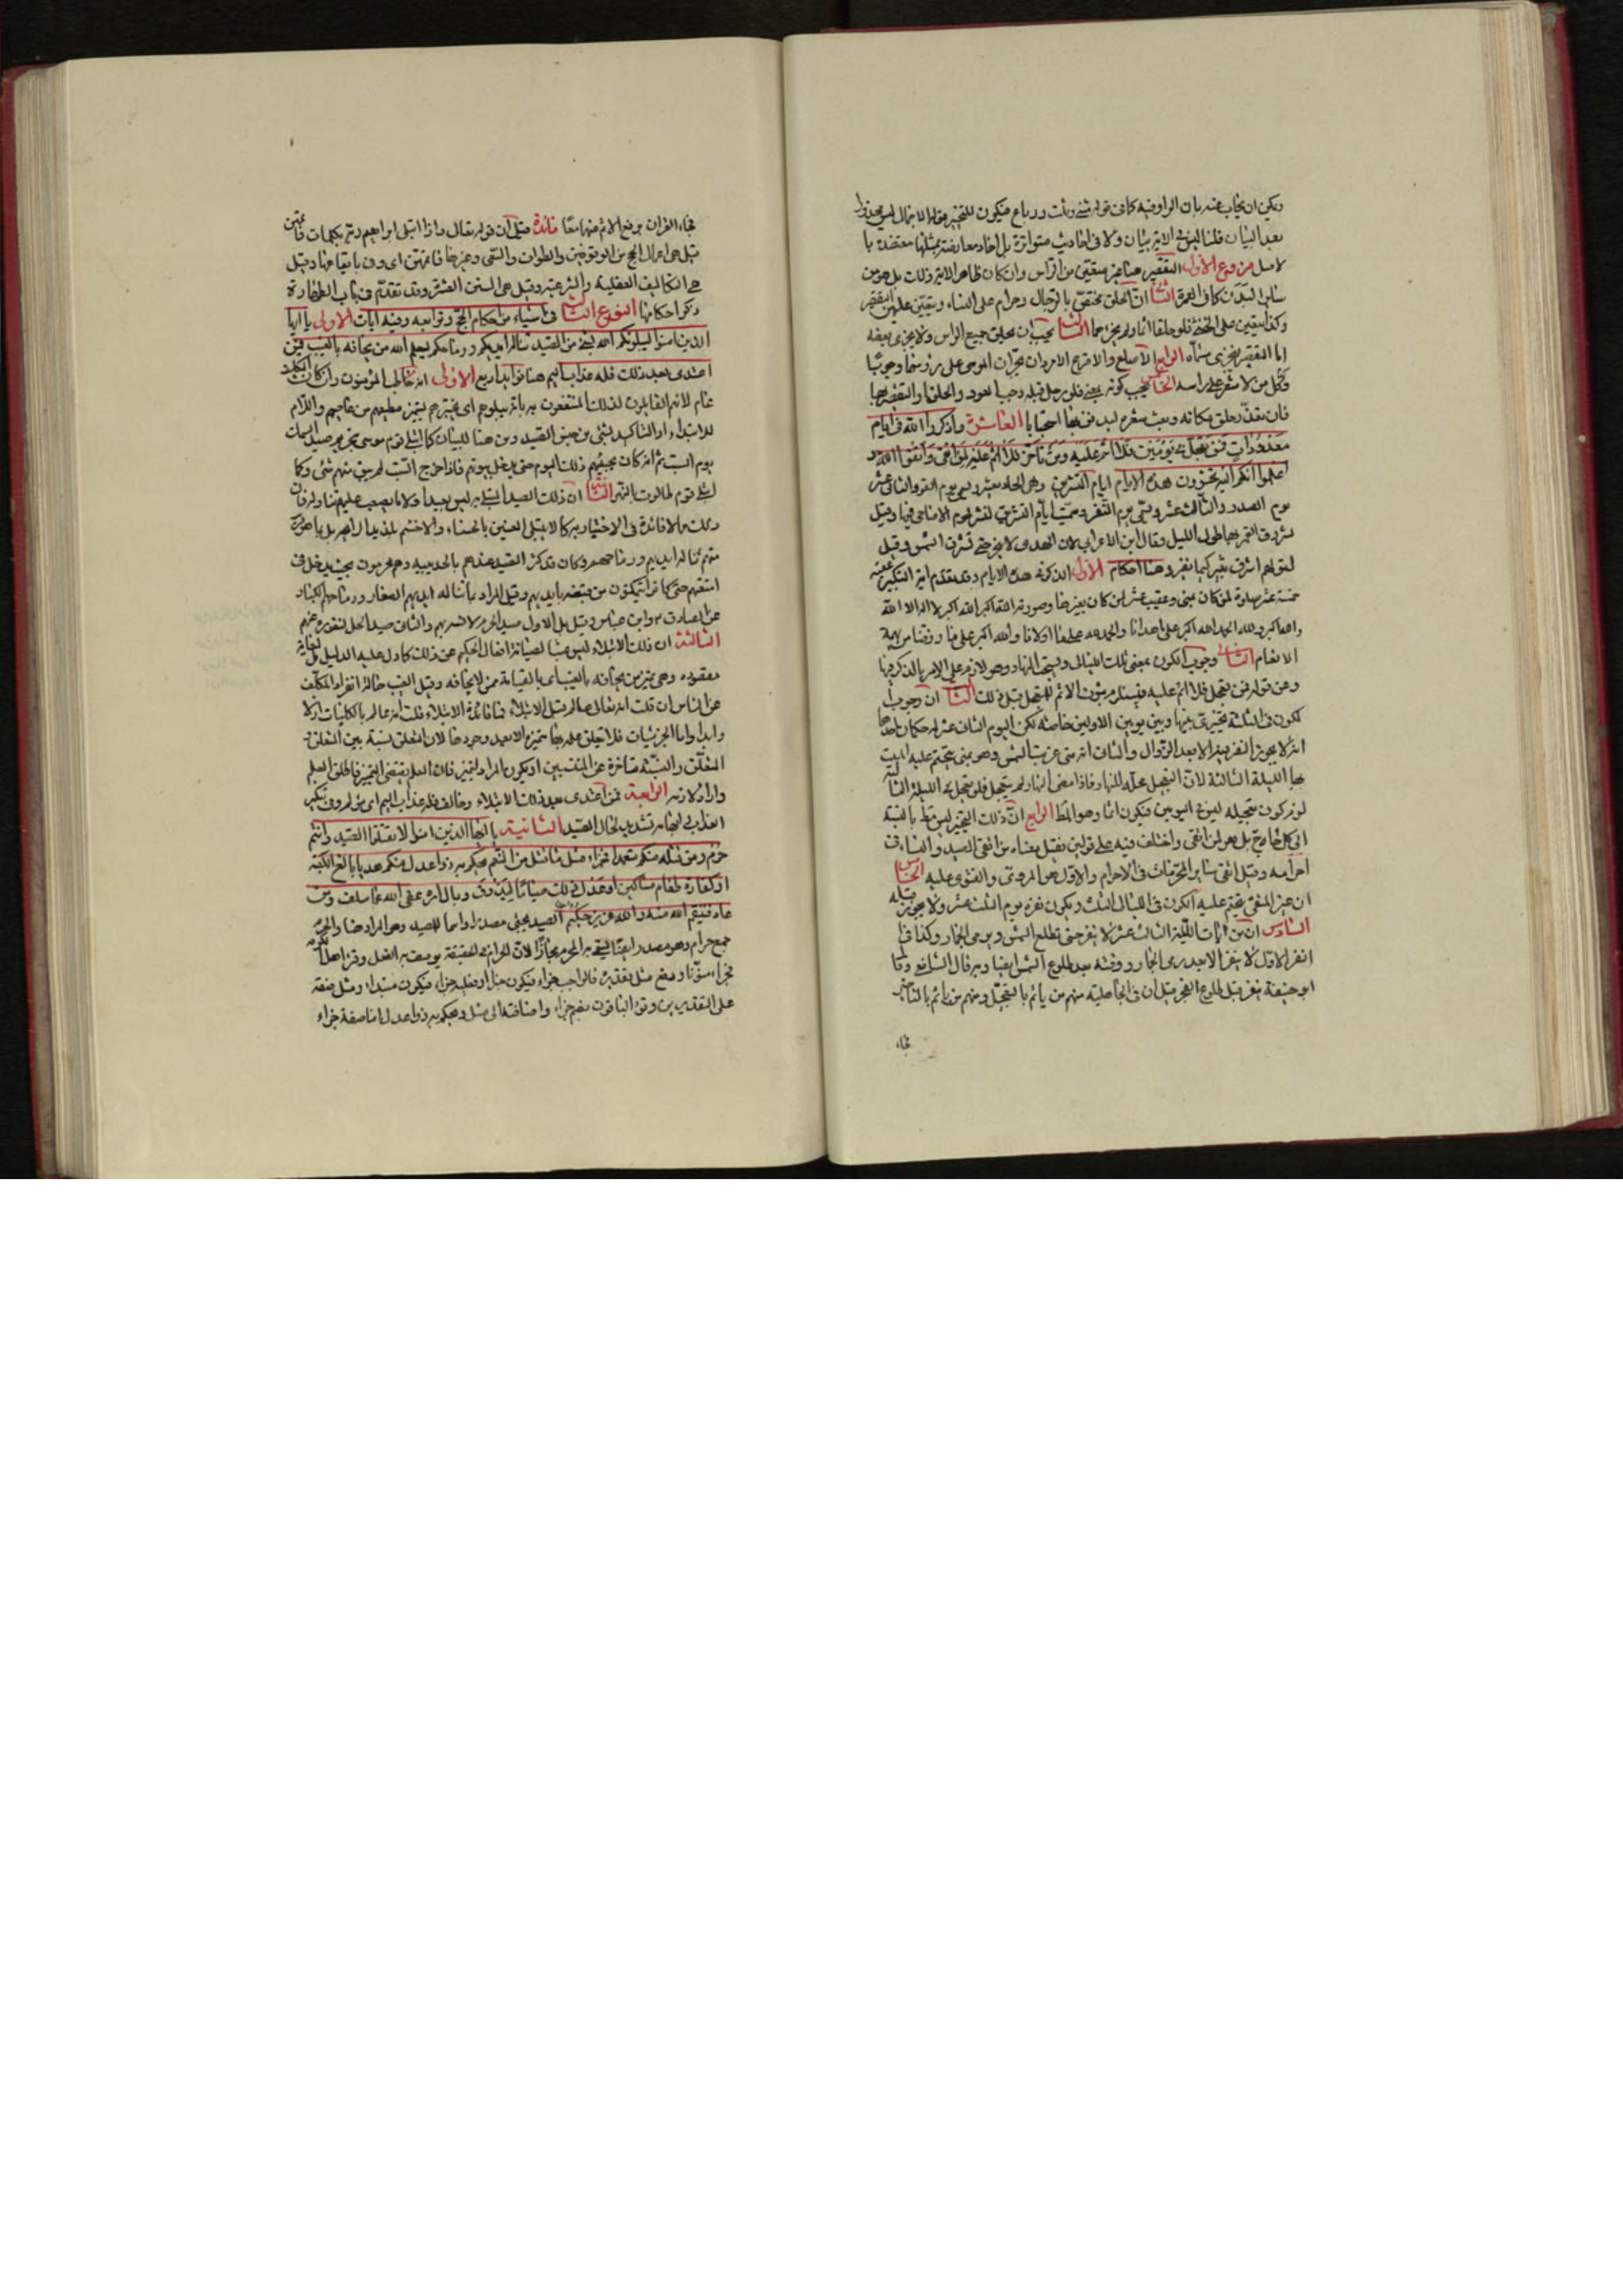 ويمكن ان يجاب عنه بان الواو فيه كما في قوله مثنى وثلث ورباع فيكون للتخيير
بعد البيان قلنا ليس في الاية بيان ولا في احاديث متواترة بل احاد معارضة بمثلها معتضدة با
لاصل فروع الاول التقصير هنا غير متعين من الراس وان كان ظاهر الاية ذلك بل هو من
سائر البدن كما في العمرة الثاني ان الحلق مختص بالرجال وحرام على النساء ويتعين عليهن التقصير
وكذا يتعين على الخنثى فلو حلقا اثما ولم يجزهما الثالث يجب ان يحلق جميع الراس ولا يجزي بعضه
اما التقصير فيجزي مسماه الرابع الاصلع والاقرع الامردان يمران الموسى على رؤسهما وجوبا
وكل من لا شعر على راسه الخامس يجب كونه بمنى فلو رحل قبله وجب العود والحلق او التقصير بها
فان تعذر حلق مكانه وبعث شعره ليدفن بها استحبابا العاشرة واذكروا الله في ايام
معدودات فمن تعجل في يومين فلا اثم عليه ومن تاخر فلا اثم عليه لمن اتقى واتقوا الله و
اعلموا انكم اليه تحشرون هذه الايام ايام التشريق وهي الحادي عشر ويسمى يوم القر والثاني عشر
يوم الصدر والثالث عشر ويسمى يوم النفر وسميت ايام التشريق لتشريق لحوم الاضاحي فيها وقيل
لشروق القمر فيها طول الليل وقال ابن الاعرابي لان الهدي لا ينحر حتى تشرق الشمس وقيل
لقولهم اشرق ثبير كيما نغير وهنا احكام الاول الذكر في هذه الايام وقد تقدم انه التكبير عقيب
خمسة عشر صلوة لمن كان بمنى وعقيب عشر لمن كان بغيرها وصورته الله اكبر الله اكبر لا اله الا الله
والله اكبر ولله الحمد الله اكبر على ما هدانا والحمد لله على ما اولانا والله اكبر على ما رزقنا من بهيمة
الانعام الثاني وجوب الكون بمنى تلك الليالي ويستحب النهار وهو لازم على الامر بالذكر فيها
ومن قوله فمن تعجل فلا اثم عليه فيستلزم ثبوت الاثم للتعجل قبل ذلك الثالث ان وجوب
الكون في الثلثة تخييري بينها وبين يومين الاولين خاصة لكن اليوم الثاني عشر له حكمان احدهما
انه لا يجوز النفر فيه الا بعد الزوال والثاني انه متى غربت الشمس وهو بمنى تحتم عليه المبيت
بها الليلة الثالثة لان التعجل محله النهار فاذا مضى النهار ولم يتعجل فلو تعجل في الليلة الثالثة
لم يكن تعجيله في اليومين فيكون اثما وهو المط الرابع ان ذلك التخيير ليس مط بالنسبة
الى كل حاج بل هو لمن اتقى واختلف فيه على قولين فقيل معناه من اتقى الصيد والنساء في
احرامه وقيل اتقى سائر المحرمات في الاحرام والاول هو المروي والفتوى عليه الخامس
ان غير المتقي يتحتم عليه الكون في الليالي الثلث ويكون نفره يوم الثالث عشر ولا يجوز قبله
السادس ان من بات الليلة الثالث عشر لا ينفر حتى تطلع الشمس ويرمي الجمار وكذا في
النفر الاول لا ينفر الا بعد رمي الجمار ووقته بعد طلوع الشمس ايضا وبه قال الشافعي وقال
ابو حنيفة ينفر قبل طلوع الفجر قيل ان في الجاهلية منهم من ياثم بالتعجيل ومنهم من ياثم بالتاخير
فجاء
فجاء القران برفع الاثم عنهما معا فائدة قيل ان قوله تعالى واذ ابتلى ابراهيم ربه بكلمات فاتمهن
قيل هي اعمال الحج من الوقوفين والطواف والسعي وغيرها فاتمهن اى وفى باتيانها وقيل
هي التكاليف العقلية والشرعية وقيل هي السنن العشر وقد تقدم في باب الطهارة
ذكر احكامها النوع الثالث في اشياء من احكام الحج وتوابعه وفيه ايات الاولى يا ايها
الذين امنوا ليبلونكم الله بشئ من الصيد تناله ايديكم ورماحكم ليعلم الله من يخافه بالغيب فمن
اعتدى بعد ذلك فله عذاب اليم هنا فوايد اربع الاولى انه خاطب المؤمنون وان كان التكليف
عام لانهم القابلون لذلك المنتفعون به بانه يبلوهم اى يختبرهم ليتميز مطيعهم من عاصيهم واللام
للابتداء او للتاكيد لشئ من جنس الصيد ومن هنا للبيان كما ابتلى قوم موسى بتحريم صيد السمك
يوم السبت ثم انه كان يجيئهم ذلك اليوم حتى يدخل بيوتهم فاذا خرج السبت لم يبق منهم شئ وكما
ابتلى قوم طالوت بالنهر الثانية ان ذلك الصيد المبتلى به ليس بعيدا ولا ما يصعب عليهم تناوله فان
ذلك مما لا فائدة في الاختبار به كما لا يبتلى العنين بالحسناء والاخشم بلذيذ الرائحة بل بما هو قريب
منهم تناله ايديهم ورماحهم وكان قد كثر الصيد عندهم بالحديبية وهم محرمون بحيث يدخل في
امتعتهم حتى كانوا يتمكنون من قبضه بايديهم وقيل المراد بما تناله ايديهم الصغار ورماحهم الكبار
عن الصادق ع وابن عباس وقيل بل الاول صيد الحرم لانسه بهم والثاني صيد الحل لنفوره عنهم
الثالثة ان ذلك الابتلاء ليس عبثا لصيانة افعال الحكيم عن ذلك كما دل عليه الدليل بل لغاية
مقصودة وهي تميز من يخافه بالغيب اى بالقيامة ممن لا يخافه وقيل الغيب حالة انفراد المكلف
عن الناس ان قلت انه تعالى عالم قبل الابتلاء فما فائدة الابتلاء قلت انه عالم بالكليات ازلا
وابدا واما الجزئيات فلا تعلق علمه بها متميزة الا بعد وجودها لان التعلق نسبة بين المتعلق و
المتعلَّق والنسبة متاخرة عن المنتسبين او يكون المراد لتميز فان العلم يقتضي التميز فاطلق العلم
واراد لازمه الرابعة فمن اعتدى بعد ذلك الابتلاء وخالف فله عذاب اليم اى مؤلم وفي تنكير
العذاب وايهامه تشديد لحال الصيد الثانية يا ايها الذين امنوا لا تقتلوا الصيد وانتم
حرم ومن قتله منكم متعمدا فجزاء مثل ما قتل من النعم يحكم به ذوا عدل منكم هديا بالغ الكعبة
او كفارة طعام مساكين او عدل ذلك صياما ليذوق وبال امره عفى الله عما سلف ومن
عاد فينتقم الله منه والله عزيز حكيم الصيد يجئ مصدرا واسما للصيد وهو المراد هنا والحرم
جمع حرام وهو مصدر ايضا سمي به المحرم مجازا لان الحرام في الحقيقة يوصف به الفعل وقرا اهل الكوفة
فجزاء منونا ورفع مثل بتقدير فالواجب جزاء فيكون خبرا او فعليه جزاء فيكون مبتداء ومثل صفة
على التقديرين وقرا الباقون بضم جزاء واضافته الى مثل ويحكم به ذوا عدل اما صفة جزاء